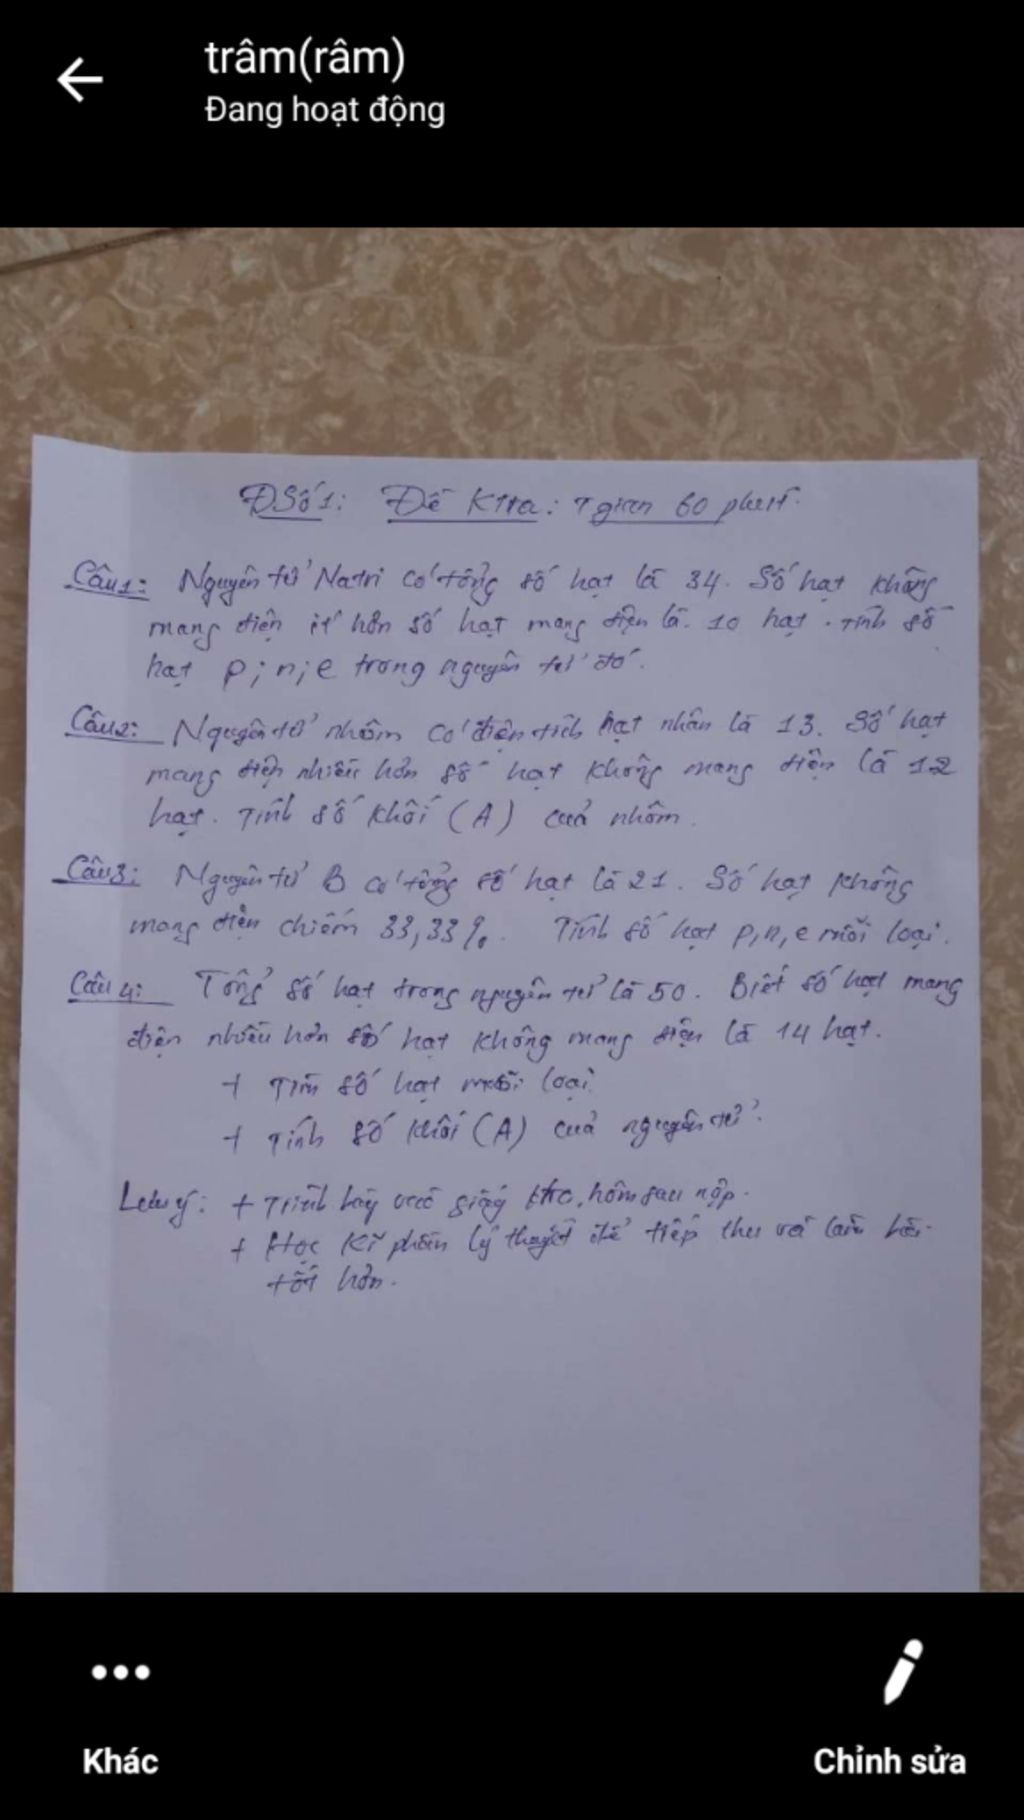 trâm(râm)
Đang hoạt động
ĐSố 1: Đề Ktra: Tgian 60 phút.
Câu1: Nguyên tử Natri có tổng số hạt là 34. Số hạt không
mang điện ít hơn số hạt mang điện là 10 hạt. Tính số
hạt p; n; e trong nguyên tử đó.
Câu2: Nguyên tử nhôm có điện tích hạt nhân là 13. Số hạt
mang điện nhiều hơn số hạt không mang điện là 12
hạt. Tính số khối (A) của nhôm.
Câu3: Nguyên tử B có tổng số hạt là 21. Số hạt không
mang điện chiếm 33,33%. Tính số hạt p, n, e mỗi loại.
Câu 4: Tổng số hạt trong nguyên tử là 50. Biết số hạt mang
điện nhiều hơn số hạt không mang điện là 14 hạt.
+ Tìm số hạt mỗi loại.
+ Tính số khối (A) của nguyên tử.
Lưu ý: + Trình bày vào giấy ktra, hôm sau nộp.
+ Học kĩ phần lý thuyết để tiếp thu và làm bài
tốt hơn.
Khác
Chỉnh sửa